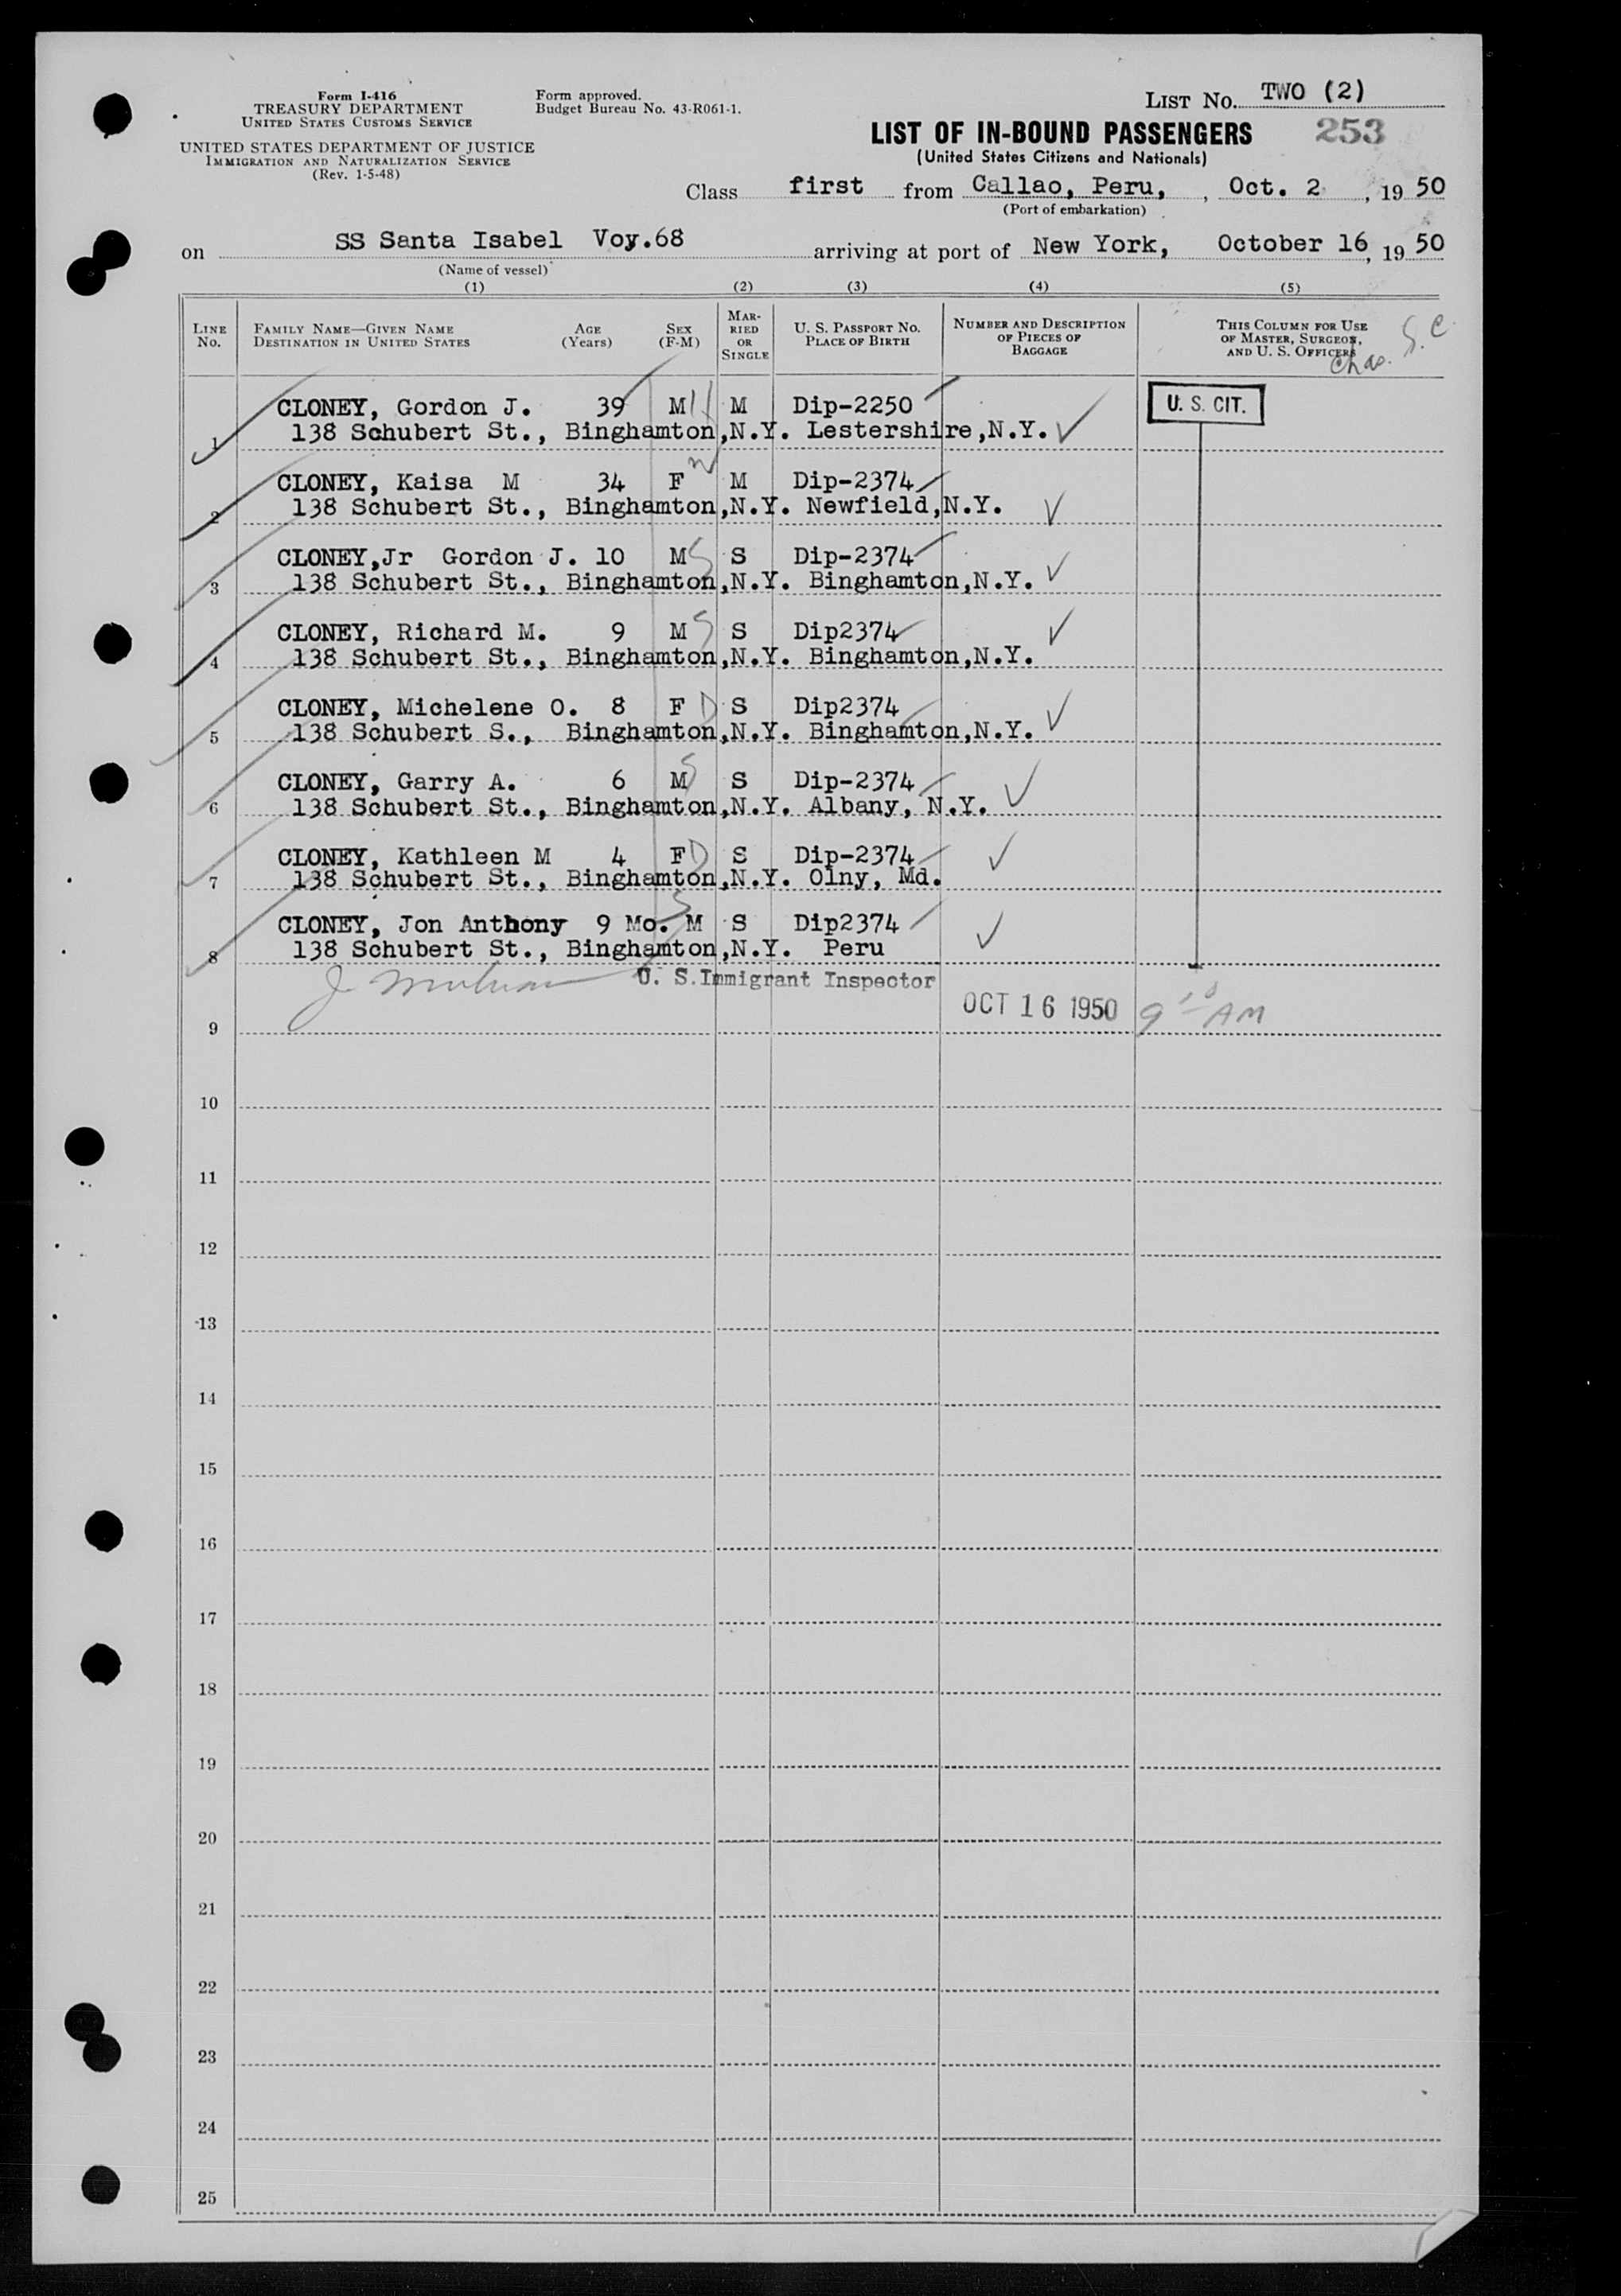 Form I-416
TREASURY DEPARTMENT
UNITED STATES CUSTOMS SERVICE
UNITED STATES DEPARTMENT OF JUSTICE
IMMIGRATION AND NATURALIZATION SERVICE
(Rev. 1-5-48)
Form approved.
Budget Bureau No. 43-R061-1.
LIST NO. TWO (2)
LIST OF IN-BOUND PASSENGERS 253
(United States Citizens and Nationals)
Class first from Callao, Peru, , Oct. 2 , 19 50
(Port of embarkation)
on SS Santa Isabel Voy.68 arriving at port of New York, October 16, 19 50
(Name of vessel)
(1) (2) (3) (4) (5)
LINE NO.
FAMILY NAME—GIVEN NAME AGE SEX
DESTINATION IN UNITED STATES (Years) (F-M)
MARRIED OR SINGLE
U. S. PASSPORT NO.
PLACE OF BIRTH
NUMBER AND DESCRIPTION OF PIECES OF BAGGAGE
THIS COLUMN FOR USE OF MASTER, SURGEON, AND U. S. OFFICERS
Chas. S. C.
U. S. CIT.
CLONEY, Gordon J. 39 M H M Dip-2250
1 138 Schubert St., Binghamton,N.Y. Lestershire,N.Y.
CLONEY, Kaisa M 34 F W M Dip-2374
2 138 Schubert St., Binghamton,N.Y. Newfield,N.Y.
CLONEY,Jr Gordon J. 10 M S S Dip-2374
3 138 Schubert St., Binghamton,N.Y. Binghamton,N.Y.
CLONEY, Richard M. 9 M S S Dip2374
4 138 Schubert St., Binghamton,N.Y. Binghamton,N.Y.
CLONEY, Michelene O. 8 F D S Dip2374
5 138 Schubert S., Binghamton,N.Y. Binghamton,N.Y.
CLONEY, Garry A. 6 M S S Dip-2374
6 138 Schubert St., Binghamton,N.Y. Albany, N.Y.
CLONEY, Kathleen M 4 F D S Dip-2374
7 138 Schubert St., Binghamton,N.Y. Olny, Md.
CLONEY, Jon Anthony 9 Mo. S M S Dip2374
8 138 Schubert St., Binghamton,N.Y. Peru
U. S.Immigrant Inspector
OCT 16 1950 9 10 AM
9
10
11
12
13
14
15
16
17
18
19
20
21
22
23
24
25